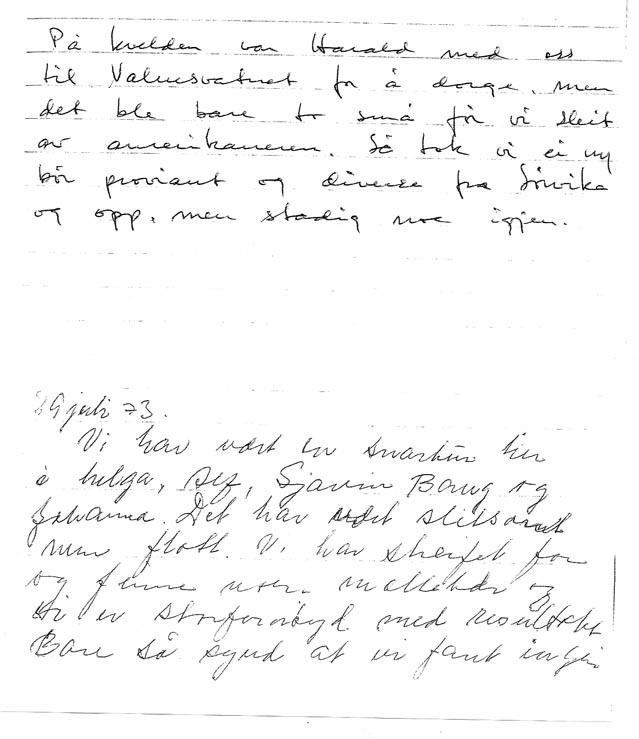 På kvelden var Harald med oss
til Valnesvatnet for å dorge, men
det ble bare to små før vi sleit
av amerikaneren. Så tok vi ei ny
bør proviant og diverse fra Sørvika
og opp, men stadig noe igjen.
29 juli 73.
Vi har vært en snartur her
i helga,
Det har vært slitsomt
men flott. Vi har streifet for
og finne noen og
vi er storfornøyd med resultatet
Bare så synd at vi fant ingen